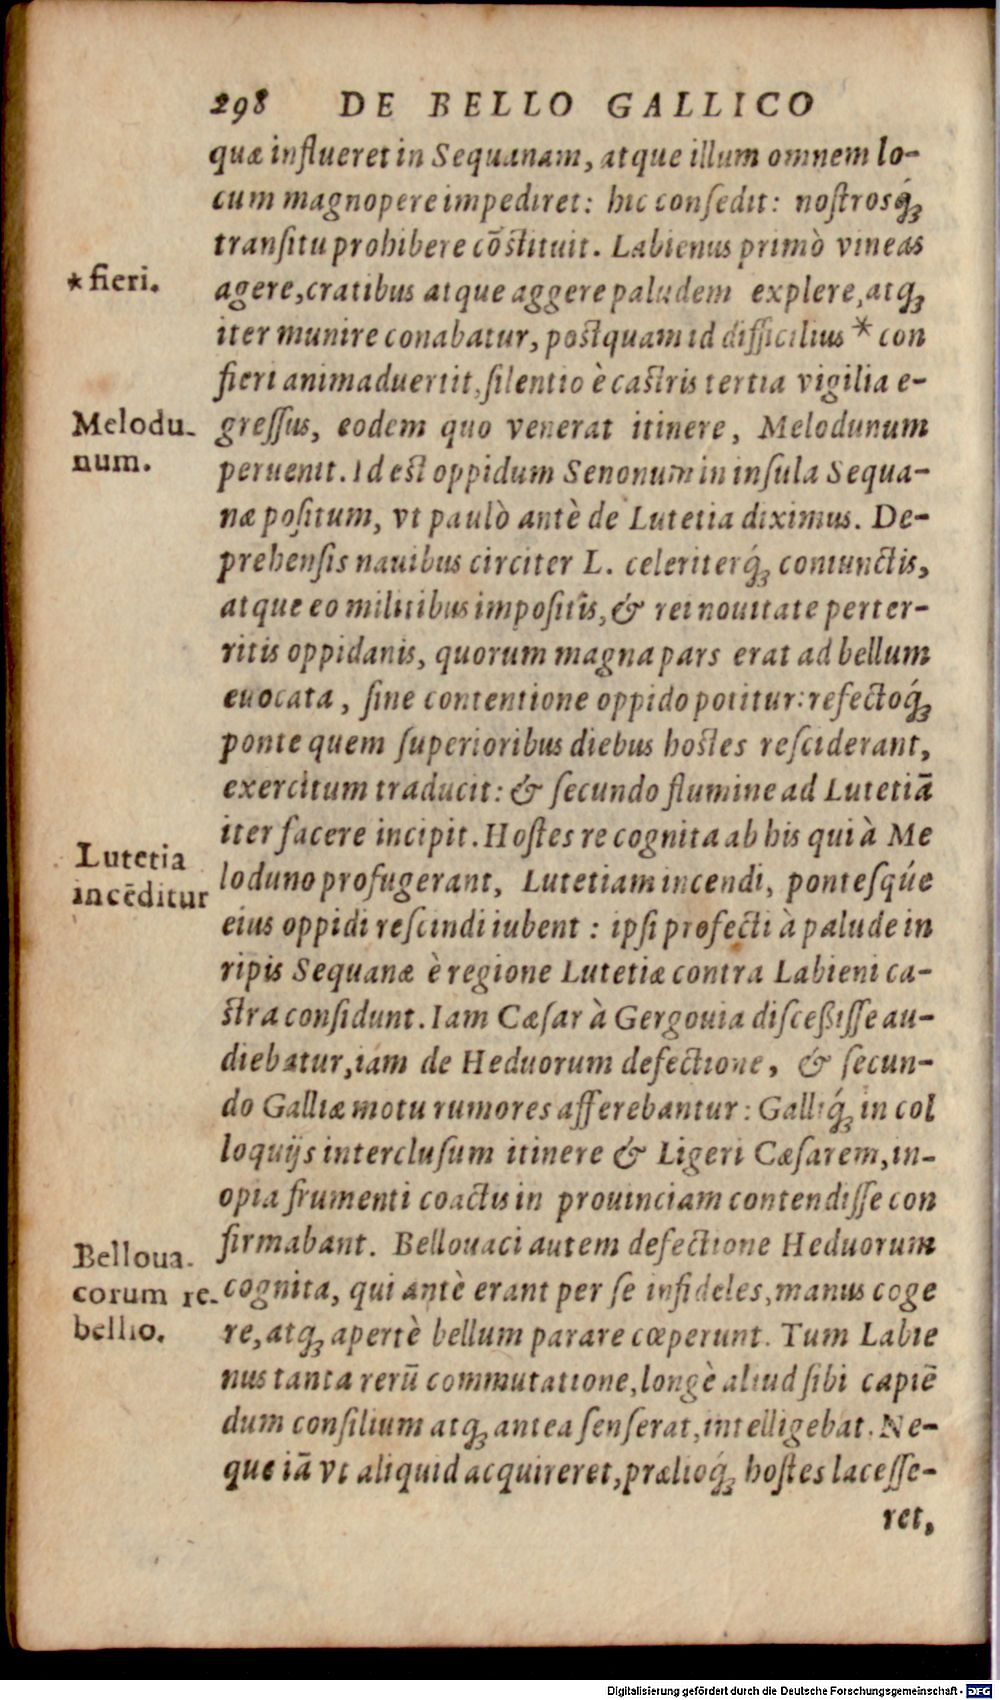 298 DE BELLO GALLICO
quæ influeret in Sequanam, atque illum omnem lo-
cum magnopere impediret: hic consedit: nostrosq́;
transitu prohibere cōstituit. Labienus primò vineas
* fieri.
agere, cratibus atque aggere paludem explere, atq;
iter munire conabatur, postquam id difficilius * con
fieri animaduertit, silentio è castris tertia vigilia e-
Melodu-
num.
gressus, eodem quo venerat itinere, Melodunum
peruenit. Id est oppidum Senonum in insula Sequa-
næ positum, vt paulò antè de Lutetia diximus. De-
prehensis nauibus circiter L. celeriterq́; coniunctis,
atque eo militibus impositis, & rei nouitate perter-
ritis oppidanis, quorum magna pars erat ad bellum
euocata, sine contentione oppido potitur: refectoq́;
ponte quem superioribus diebus hostes resciderant,
exercitum traducit: & secundo flumine ad Lutetiā
iter facere incipit. Hostes re cognita ab his qui à Me
Lutetia
incēditur
loduno profugerant, Lutetiam incendi, pontesqúe
eius oppidi rescindi iubent: ipsi profecti à palude in
ripis Sequanæ è regione Lutetiæ contra Labieni ca-
stra considunt. Iam Cæsar à Gergouia disceßisse au-
diebatur, iam de Heduorum defectione, & secun-
do Galliæ motu rumores afferebantur: Galliq́; in col
loquijs interclusum itinere & Ligeri Cæsarem, in-
opia frumenti coactus in prouinciam contendisse con
firmabant. Bellouaci autem defectione Heduorum
Belloua-
corum re-
bellio.
cognita, qui antè erant per se infideles, manus coge
re, atq; apertè bellum parare cœperunt. Tum Labie
nus tanta rerū commutatione, longè aliud sibi capiē
dum consilium atq; antea senserat, intelligebat. Ne-
que iā vt aliquid acquireret, prælioq́; hostes lacesse-
ret,
Digitalisierung gefördert durch die Deutsche Forschungsgemeinschaft - DFG